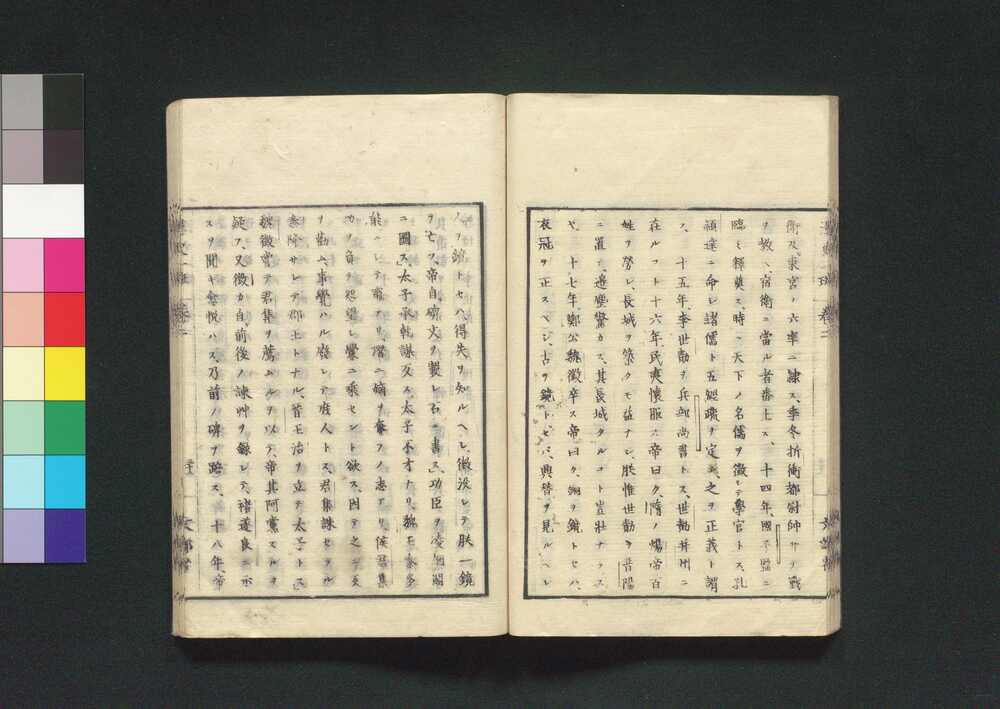 衛及東宮ノ六率ニ隷ス、季冬折衝都尉帥サヰテ戰
ヲ教ヘ、宿衛ニ當ル者番上ス、十四年、國子監ニ
臨ミ釋奠ス、時ニ天下ノ名儒ヲ徴シテ學官トス、孔
穎達ニ命シ諸儒ト五經疏ヲ定ム、之ヲ正義ト謂
フ、十五年、李世勣ヲ兵部尚書トス、世勣并州ニ
在ルコト十六年、民夷懷服ス帝曰ク、隋ノ煬帝百
姓ヲ勞シ、長城ヲ築クモ益ナシ、朕惟世勣ヲ晋陽
ニ置テ、邊塵驚カス、其長城タルコト豈壯ナラス
ヤ、十七年、鄭公魏徴卒ス帝曰ク、銅ヲ鏡トセハ、
衣冠ヲ正スベシ、古ヲ鏡トセハ、興替ヲ見ルヘシ
人ヲ鏡トセハ、得失ヲ知ルヘシ、徴没シテ朕一鏡
ヲ亡フ、帝自碑文ヲ製シ石ニ書ス、功臣ヲ凌烟閣
ニ圖ス、太子承乾謀反ス、太子不才ナリ、魏王泰多
能ニシテ寵アリ、潜ニ嫡ヲ奪フノ志アリ、侯君集
功ヲ負ヲ怨望シ釁ニ乘セント欲ス、因テ之ニ反
ヲ勸ム、事覺ハル廢シテ庶人トス、君集誅セラル
泰降サレテ郡王トナル、晋王治ヲ立テ太子トス
魏徴嘗テ君集ヲ薦ムルヲ以テ、帝其阿黨スルヲ
疑フ、又徴カ自前後ノ諫艸ヲ録シテ、褚遂良ニ示
スヲ聞キ愈悦ハス、乃前ノ碑ヲ踣ス、十八年、帝